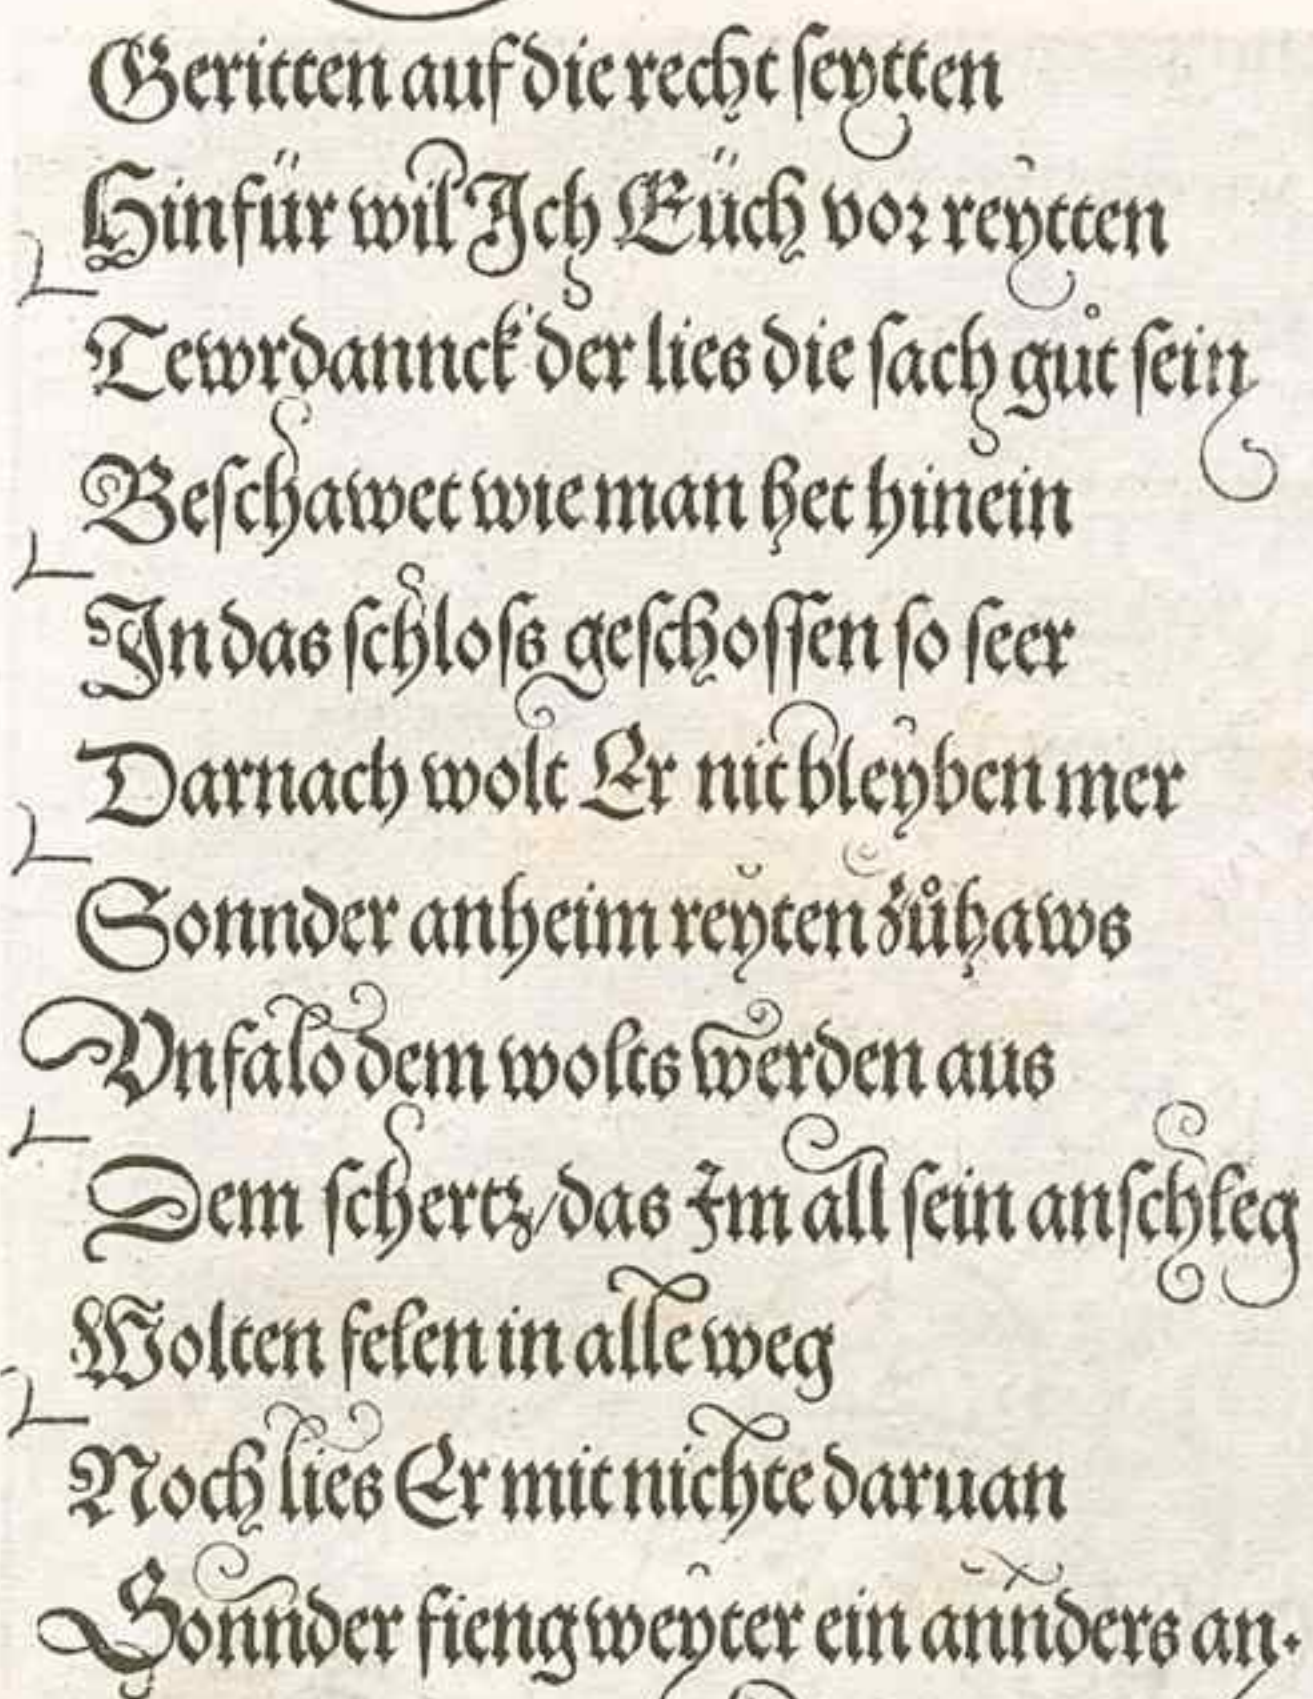 Geritten auf die recht seytten
Hinfür wil Ich Eüch vor reytten
Tewrdannck der lies die sach gůt sein
Beschawet wie man het hinein
In das schloss geschossen so seer
Darnach wolt Er nit bleyben mer
Sonnder anheim reyten zůhaws
Vnfalo dem wolts werden aus
Dem schertz/das Im all sein anschleg
Wolten felen in alle weg
Noch lies Er mit nichte daruan
Sonnder fieng weyter ein annders an.